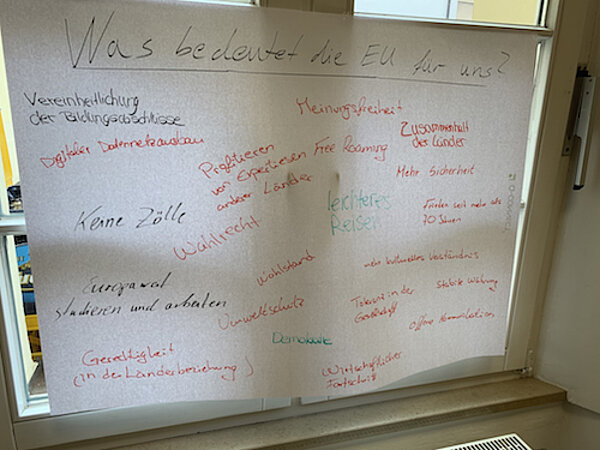 Was bedeutet die EU für uns?
Vereinheitlichung
der Bildungsabschlüsse
Meinungsfreiheit
Zusammenhalt
der Länder
Digitaler Datennetzausbau
Profitieren
von Expertiesen
anderer Länder
Free Roaming
Mehr Sicherheit
leichteres
Reisen
Frieden seit mehr als
70 Jahren
Keine Zölle
Wahlrecht
Wohlstand
mehr kulturelles Verständnis
Europaweit
studieren und arbeiten
Umweltschutz
Toleranz in der
Gesellschaft
stabile Währung
offene Kommunikation
Demokratie
Gerechtigkeit
(in der Länderbeziehung)
Wirtschaftlicher
Fortschritt